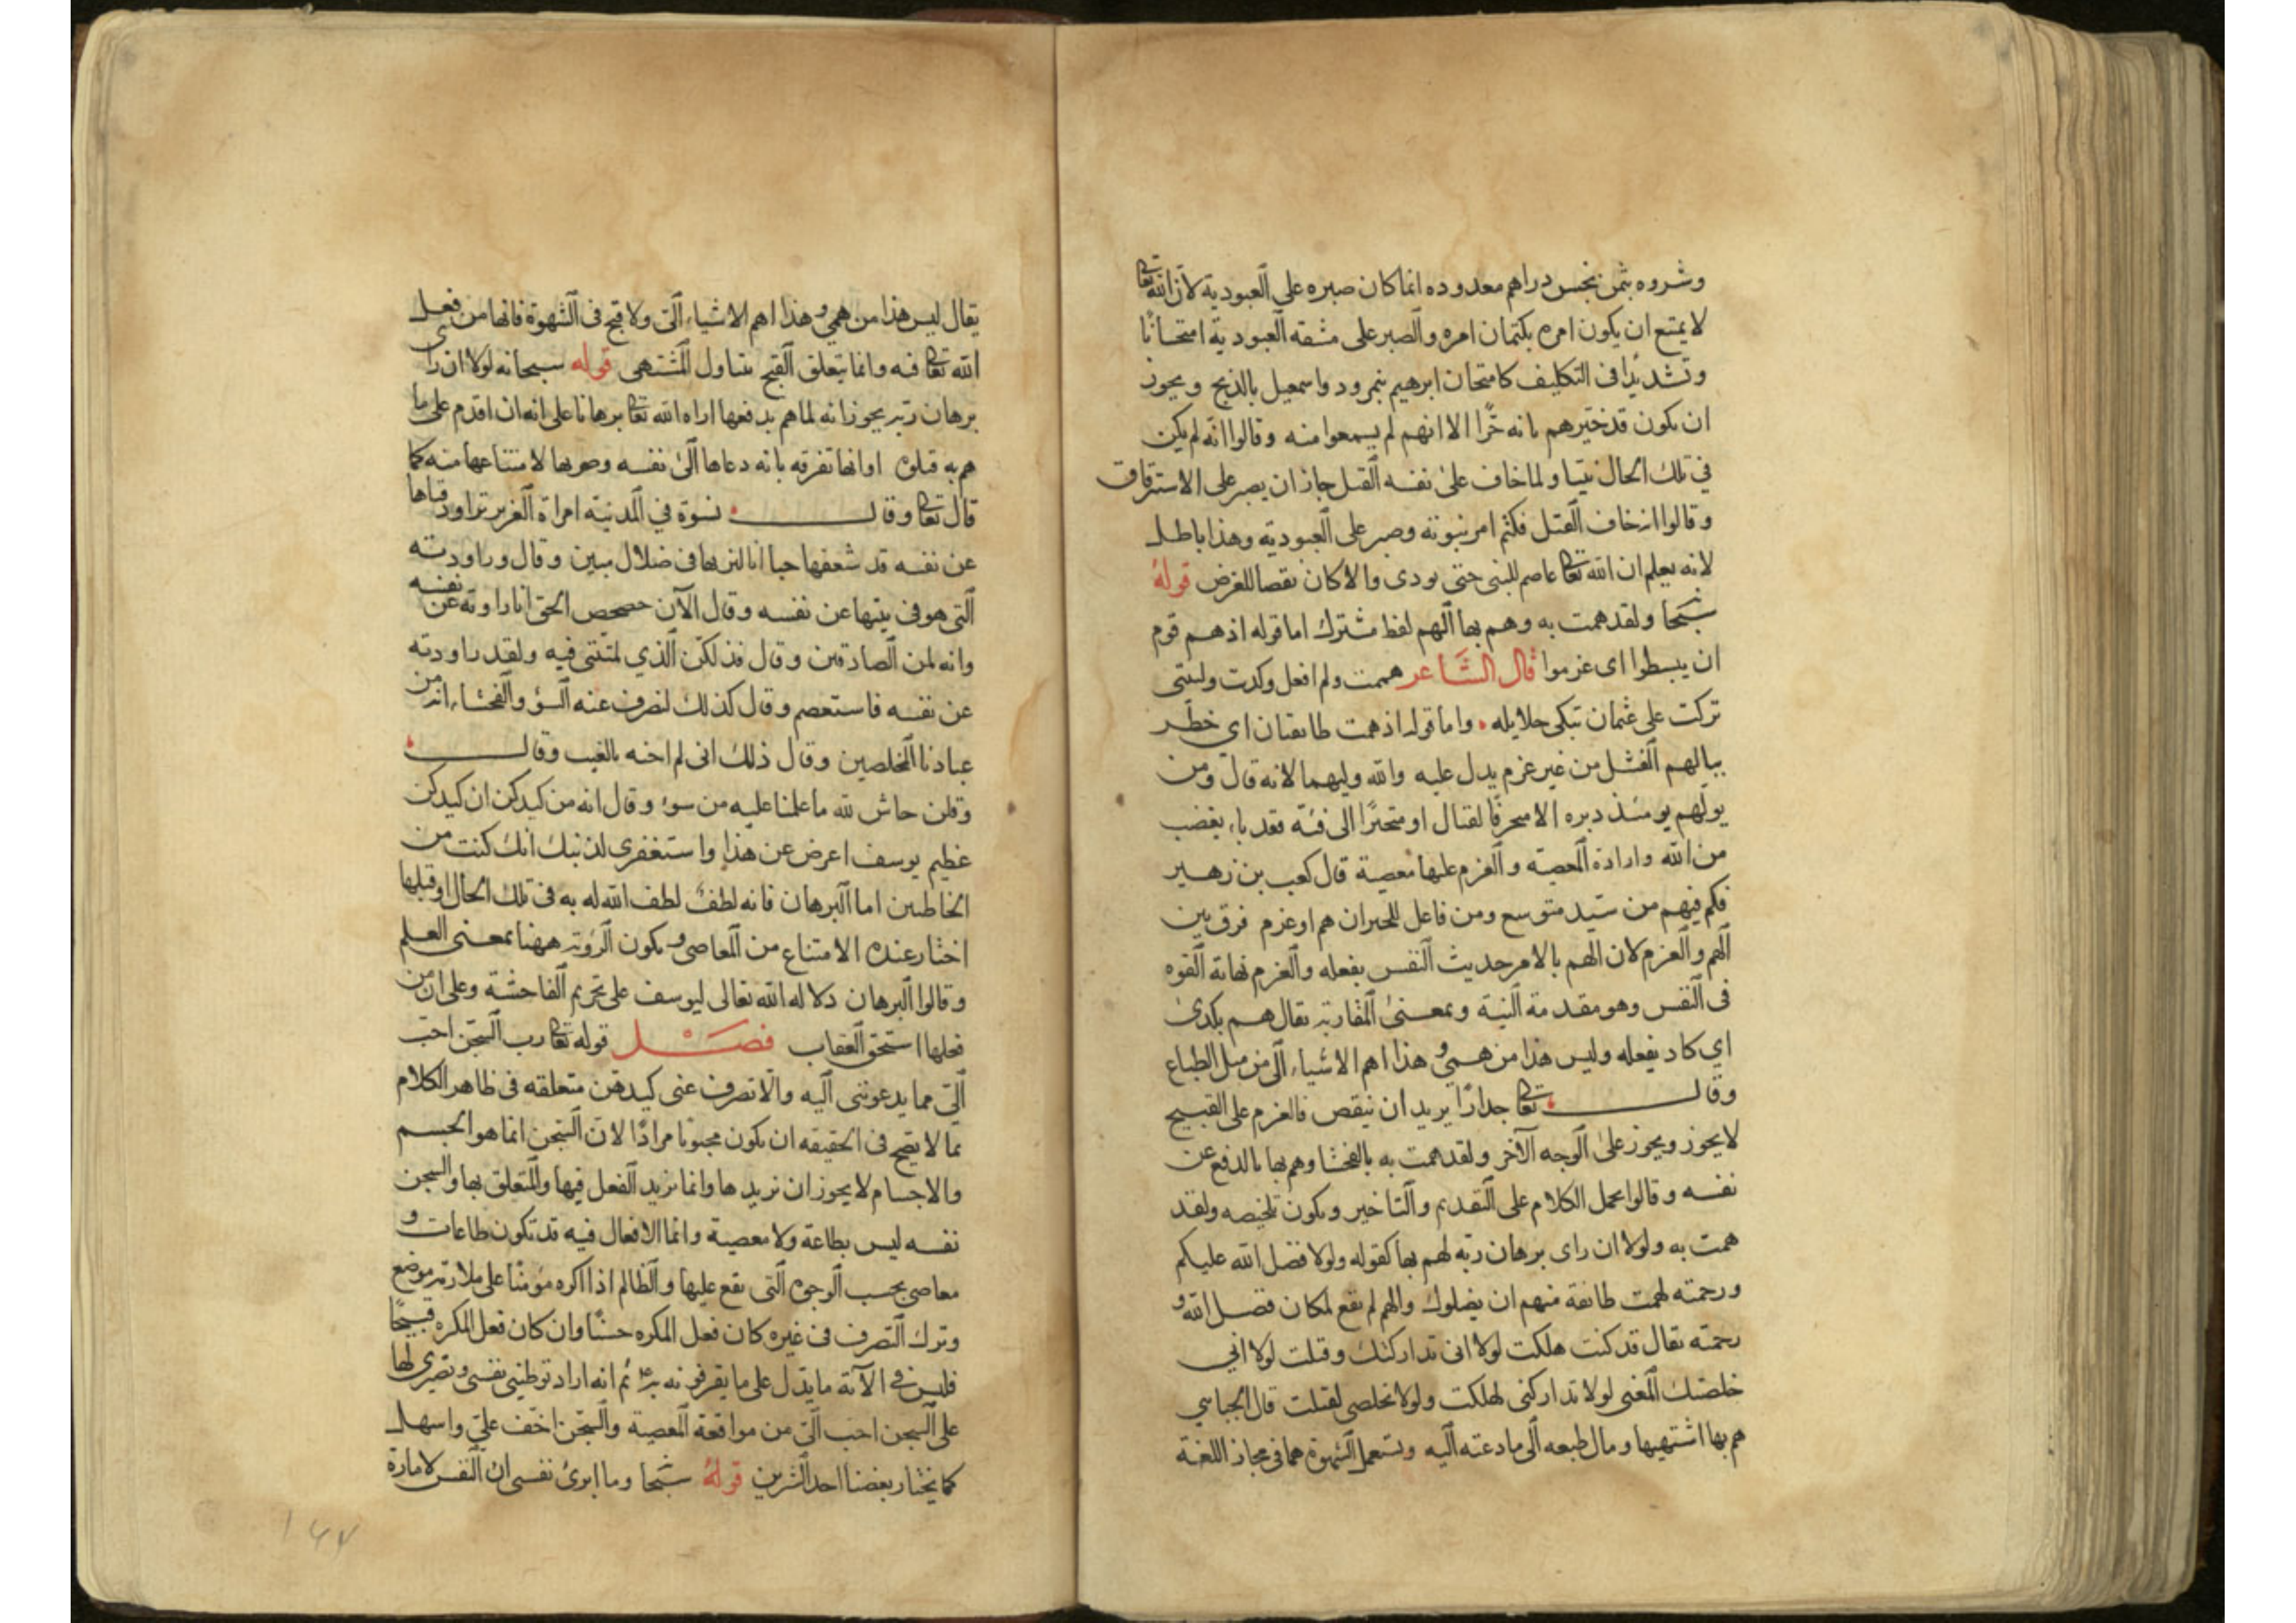 وشروه بثمن بخس دراهم معدوده انما كان صبره على العبودية لان الله تعا
لا يمتنع ان يكون امره بكتمان امره والصبر على مشقه العبودية امتحانا
وتشديدا فى التكليف كامتحان ابرهيم بنمرود واسمعيل بالذبح ويجوز
ان يكون قد خبرهم بانه حرا الا انهم لم يسمعوا منه وقالوا انه لم يكن
في تلك الحال نبيا ولما خاف على نفسه القتل جاز ان يصبر على الاسترقاق
وقالوا انه خاف القتل فكتم امر نبوته وصبر على العبودية وهذا باطل
لانه يعلم ان الله تعا عاصم للنبى حتى يودى والا كان نقصا للغرض قوله
سبحا ولقد همت به وهم بها الهم لفظ مشترك اما قوله اذ هم قوم
ان يبسطوا اى عزموا قال الشاعر هممت ولم افعل وكدت وليتنى
تركت على عثمان تبكى حلايله واما قوله اذ همت طايفتان اى خطر
ببالهم الفشل من غير عزم يدل عليه والله وليهما لانه قال ومن
يولهم يومئذ دبره الا متحرفا لقتال او متحيزا الى فئة فقد باء بغضب
من الله وارادة المعصيه والعزم عليها معصية قال كعب بن زهير
فكم فيهم من سيد متوسع ومن فاعل للخيران هم او عزم فرق بين
الهم والعزم لان الهم بالامر حديث النفس بفعله والعزم نهاية القوه
فى النفس وهو مقدمة النية وبمعنى المقاربة يقال هم بكذى
اي كاد يفعله وليس هذا من همى وهذا اهم الاشياء الى من ميل الطباع
وقال تعا جدارا يريد ان ينقص فالعزم على القبيح
لا يجوز ويجوز على الوجه الآخر ولقد همت به بالفحشا وهم بها بالدفع عن
نفسه وقالوا يحمل الكلام على التقديم والتاخير ويكون تلخيصه ولقد
همت به ولولا ان راى برهان ربه لهم بها كقوله ولولا فضل الله عليكم
ورحمته لهمت طائفة منهم ان يضلوك والهم لم يقع لمكان فضل الله و
رحمته يقال قد كنت هلكت لولا انى تداركتك وقتلت لولا اني
خلصتك المعنى لولا تداركنى لهلكت ولولا تخلصى لقتلت قال الجباسي
هم بها اشتهيها ومال طبعه الى ما دعته اليه وتستعمل الشهوة هما فى مجاز اللغة
يقال ليس هذا من همي وهذا اهم الاشياء الى ولا قبح فى الشهوة فانها من فعل
الله تعا فيه وانما يتعلق القبح بتناول المشتهى قوله سبحانه لولا ان رأى
برهان ربه يجوز انه لما هم بدفعها اراه الله تعا برهانا على انه ان اقدم على ما
هم به قتلوه او انها تفرقه بانه دعاها الى نفسه وضربها لامتناعها منه كما
قال تعا وقال نسوة في المدينة امراة العزيز تراود فتاها
عن نفسه قد شعفها حبا انا لنريها فى ضلال مبين وقال وراودته
التى هو فى بيتها عن نفسه وقال الآن حصحص الحق انا راودته عن نفسه
وانه لمن الصادقين وقال فذلكن الذي لمتننى فيه ولقد راودته
عن نفسه فاستعصم وقال كذلك لنصرف عنه السؤ والفحشاء انه من
عبادنا المخلصين وقال ذلك انى لم اخنه بالغيب وقال
وقلن حاش لله ما علمنا عليه من سوء وقال انه من كيدكن ان كيدكن
عظيم يوسف اعرض عن هذا واستغفرى لذنبك انك كنت من
الخاطئين اما البرهان فانه لطف لطف الله له به فى تلك الحال او قبلها
اختار عنده الامتناع من المعاصى ويكون الرؤية ههنا بمعنى العلم
وقالوا البرهان دلاله الله تعالى ليوسف على تحريم الفاحشة وعلى ان من
فعلها استحق العقاب فصل قوله تعا رب السجن احب
الى مما يدعوننى اليه والا تصرف عنى كيدهن متعلقه فى ظاهر الكلام
بما لا يصح فى الحقيقه ان يكون محبوبا مرادا لان السجن انما هو الجسم
والاجسام لا يجوز ان نريدها وانما نريد الفعل فيها والمتعلق بها والسجن
نفسه ليس بطاعة ولا معصية وانما الافعال فيه قد تكون طاعات و
معاصى بحسب الوجوه التى يقع عليها والظالم اذا اكره مؤمنا على ملازمة موضع
وترك التصرف فى غيره كان فعل المكره حسنا وان كان فعل المكره قبيحا
فليس في الآية ما يدل على ما يقرفونه به ثم انه اراد توطينى نفسى وتصبرى لها
على السجن احب الى من مواقعة المعصية والسجن اخف على واسهل
كما يختار بعضنا احد الشرين قوله سبحا وما ابرئ نفسى ان النفس لامارة